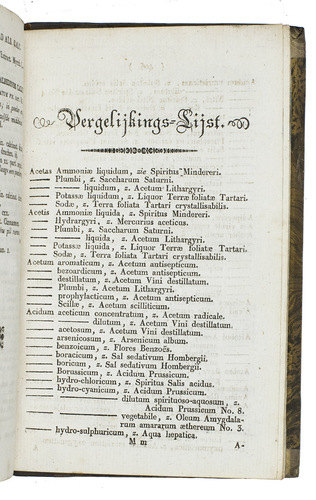 Vergelijkings-Lijst.
Acetas Ammoniæ liquidum, zie Spiritus Mindereri.
—— Plumbi, z. Saccharum Saturni.
—— —— liquidum, z. Acetum Lithargyri.
—— Potassæ liquidum, z. Liquor Terræ foliatæ Tartari.
—— Sodæ, z. Terra foliata Tartari crystallisabilis.
Acetis Ammoniæ liquida, z. Spiritus Mindereri.
—— Hydrargyri, z. Mercurius aceticus.
—— Plumbi, z. Saccharum Saturni.
—— —— liquida, z. Acetum Lithargyri.
—— Potassæ liquida, z. Liquor Terræ foliatæ Tartari.
—— Sodæ, z. Terra foliata Tartari crystallisabilis.
Acetum aromaticum, z. Acetum antisepticum.
—— bezoardicum, z. Acetum antisepticum.
—— destillatum, z. Acetum Vini destillatum.
—— Plumbi, z. Acetum Lithargyri.
—— prophylacticum, z. Acetum antisepticum.
—— Scillæ, z. Acetum scilliticum.
Acidum aceticum concentratum, z. Acetum radicale.
—— —— dilutum, z. Acetum Vini destillatum.
—— acetosum, z. Acetum Vini destillatum.
—— arsenicosum, z. Arsenicum album.
—— benzoicum, z. Flores Benzoës.
—— boracicum, z. Sal sedativum Hombergii.
—— boricum, z. Sal sedativum Hombergii.
—— Borussicum, z. Acidum Prussicum.
—— hydro-chloricum, z. Spiritus Salis acidus.
—— hydro-cyanicum, z. Acidum Prussicum.
—— —— dilutum spirituoso-aquosum, z.
Acidum Prussicum No. 8.
—— —— vegetabile, z. Oleum Amygdala-
rum amararum æthereum No. 3.
—— hydro-sulphuricum, z. Aqua hepatica.
M m A-